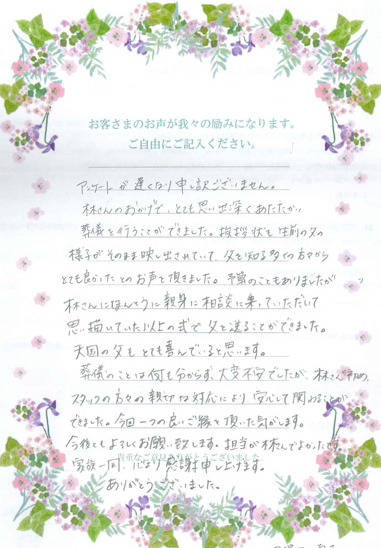 お客さまのお声が我々の励みになります。
ご自由にご記入ください。
アンケートが遅くなり申し訳ございません。
林さんのおかげで、とても思い出深くあたたかい
葬儀を行うことができました。挨拶状も生前の父の
様子がそのまま映し出されていて、父を知る多くの方々から
とても良かったとのお声を頂きました。予算のこともありましたが
林さんにほんとうに親身に相談に乗っていただいて
思い描いていた以上の式で父を送ることができました。
天国の父もとても喜んでいると思います。
葬儀のことは何も分からず、大変不安でしたが、林さん始め、
スタッフの方々の親切な対応により安心して関わることが
できました。今回一つの良いご縁を頂いた気がします。
今後ともよろしくお願い致します。担当が林さんでよかったです
貴重なご意見ありがとうございました。
家族一同、心より感謝申し上げます。
ありがとうございました。